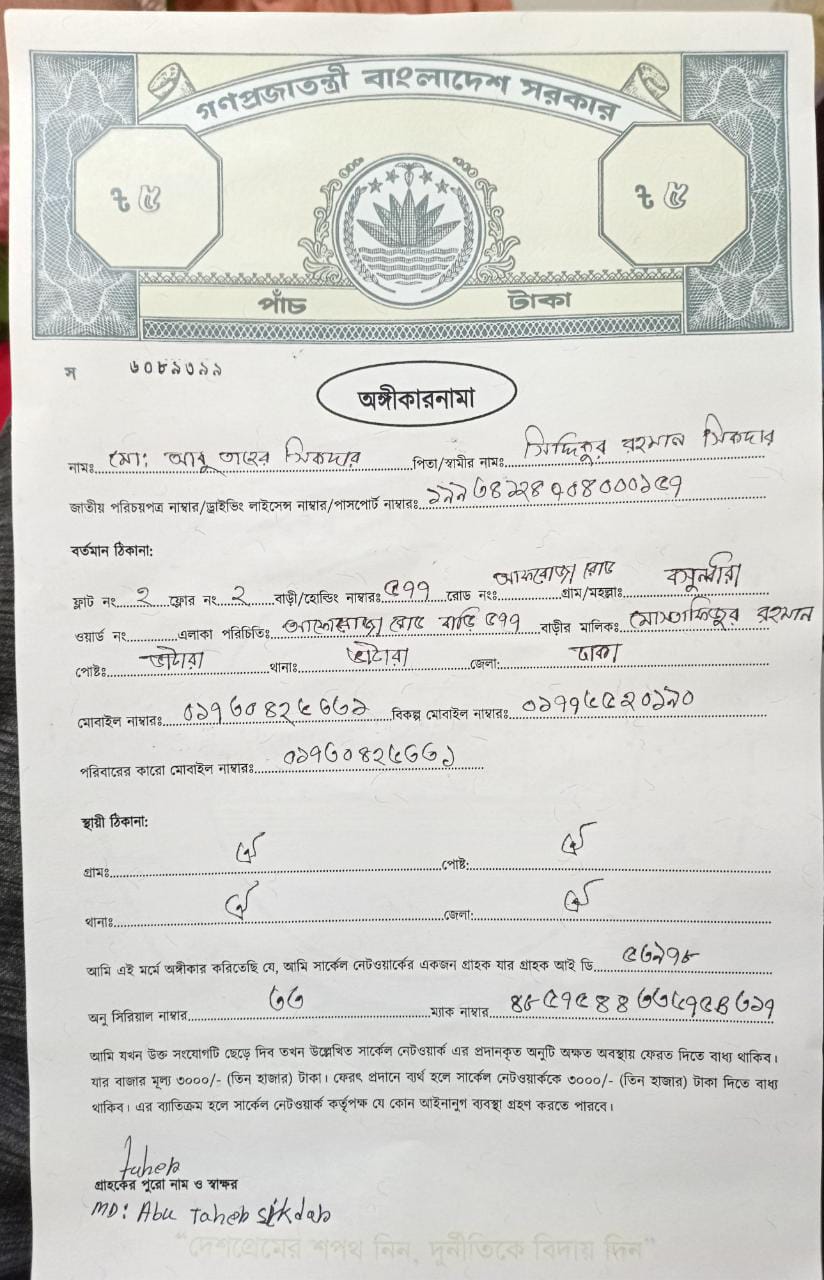 গণপ্রজাতন্ত্রী বাংলাদেশ সরকার
৳ ৫ ৳ ৫
পাঁচ টাকা
স ৬০৮৯৩৯৯
অঙ্গীকারনামা
নামঃ মো: আবু তাহের সিকদার পিতা/স্বামীর নামঃ সিদ্দিকুর রহমান সিকদার
জাতীয় পরিচয়পত্র নাম্বার/ড্রাইভিং লাইসেন্স নাম্বার/পাসপোর্ট নাম্বারঃ
বর্তমান ঠিকানা:
ফ্লাট নং ২ ফ্লোর নং ২ বাড়ী/হোল্ডিং নাম্বারঃ ৫৭৭ রোড নংঃ রোড গ্রাম/মহল্লাঃ বসুন্ধরা
ওয়ার্ড নং এলাকা পরিচিতিঃ রোড বাড়ি ৫৭৭ বাড়ীর মালিকঃ মোস্তাফিজুর রহমান
পোষ্টঃ ভাটারা থানাঃ ভাটারা জেলা: ঢাকা
মোবাইল নাম্বারঃ ০১৭৩০৪২৫৩৩১ বিকল্প মোবাইল নাম্বারঃ ০১৭৭৫৫২০১৯০
পরিবারের কারো মোবাইল নাম্বারঃ ০১৭৩০৪২৫৩৩১
স্থায়ী ঠিকানা:
গ্রামঃ ঐ পোষ্ট: ঐ
থানাঃ ঐ জেলা: ঐ
আমি এই মর্মে অঙ্গীকার করিতেছি যে, আমি সার্কেল নেটওয়ার্কের একজন গ্রাহক যার গ্রাহক আই ডি ৫৩৯৭৮
অনু সিরিয়াল নাম্বার ৩৩ ম্যাক নাম্বার
আমি যখন উক্ত সংযোগটি ছেড়ে দিব তখন উল্লেখিত সার্কেল নেটওয়ার্ক এর প্রদানকৃত অনুটি অক্ষত অবস্থায় ফেরত দিতে বাধ্য থাকিব।
যার বাজার মূল্য ৩০০০/- (তিন হাজার) টাকা। ফেরৎ প্রদানে ব্যর্থ হলে সার্কেল নেটওয়ার্ককে ৩০০০/- (তিন হাজার) টাকা দিতে বাধ্য
থাকিব। এর ব্যতিক্রম হলে সার্কেল নেটওয়ার্ক কর্তৃপক্ষ যে কোন আইনানুগ ব্যবস্থা গ্রহণ করতে পারবে।
taher
গ্রাহকের পুরো নাম ও স্বাক্ষর
MD: Abu Taher Sikdar
“দেশপ্রেমের শপথ নিন, দুর্নীতিকে বিদায় দিন”